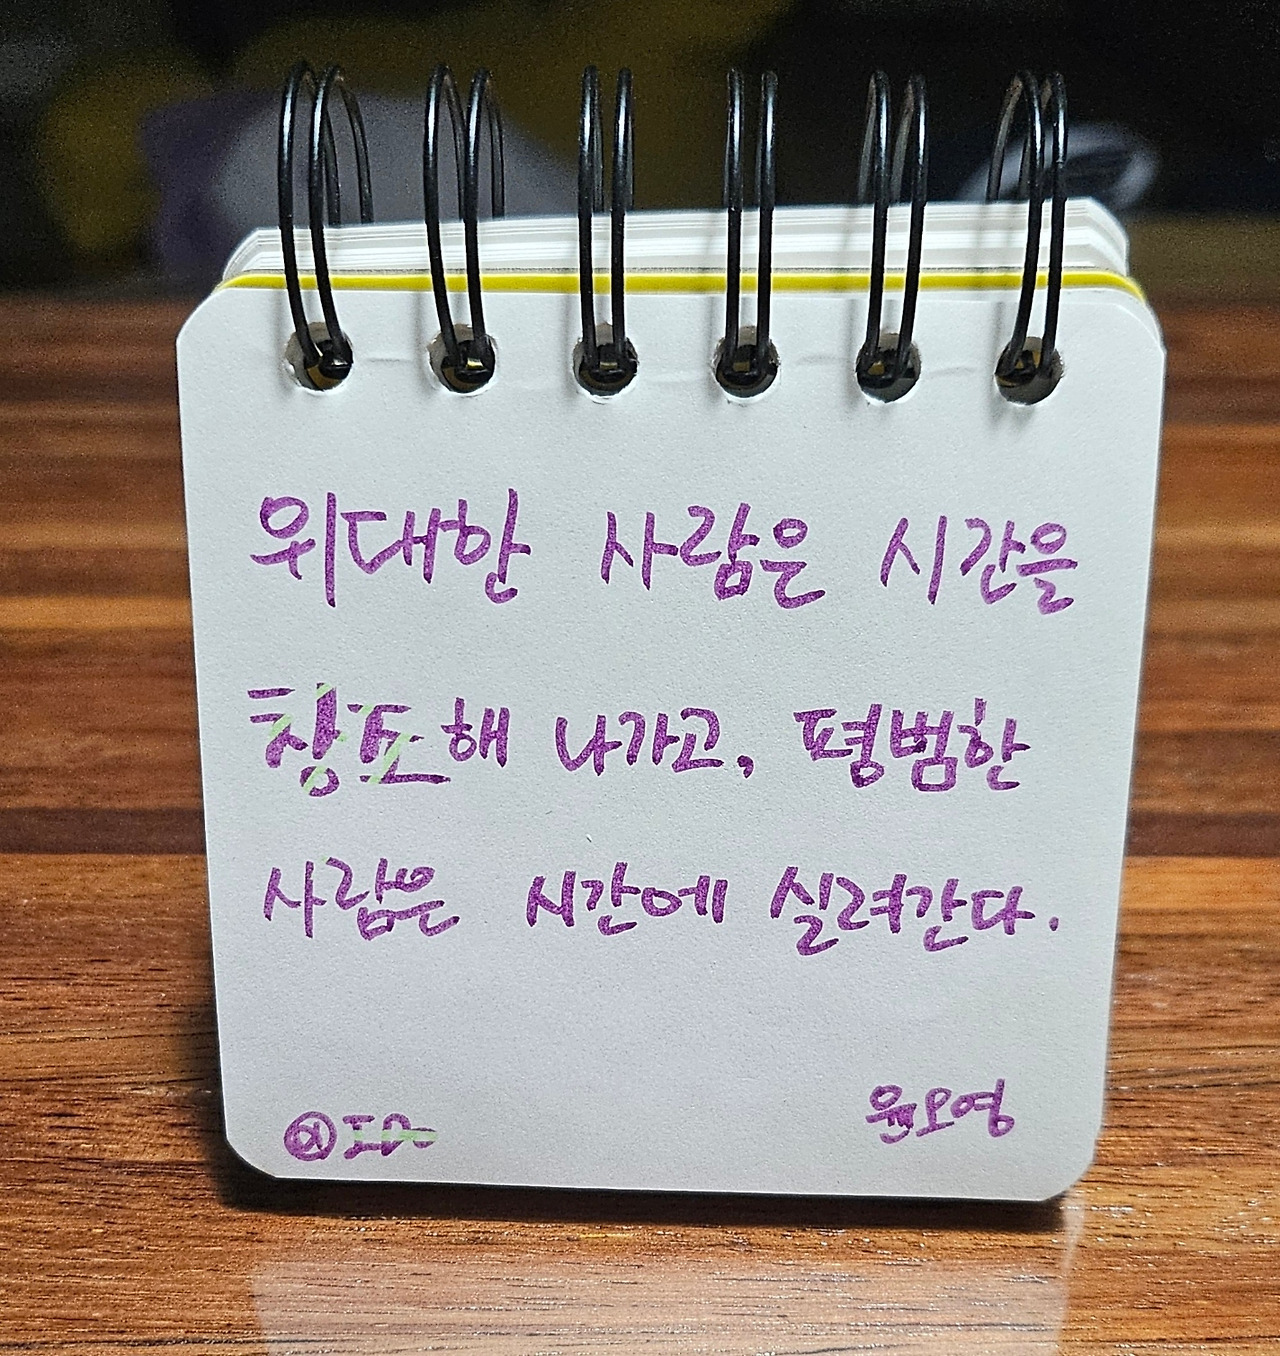 위대한 사람은 시간을
창조해 나가고, 평범한
사람은 시간에 실려간다.
윤오영